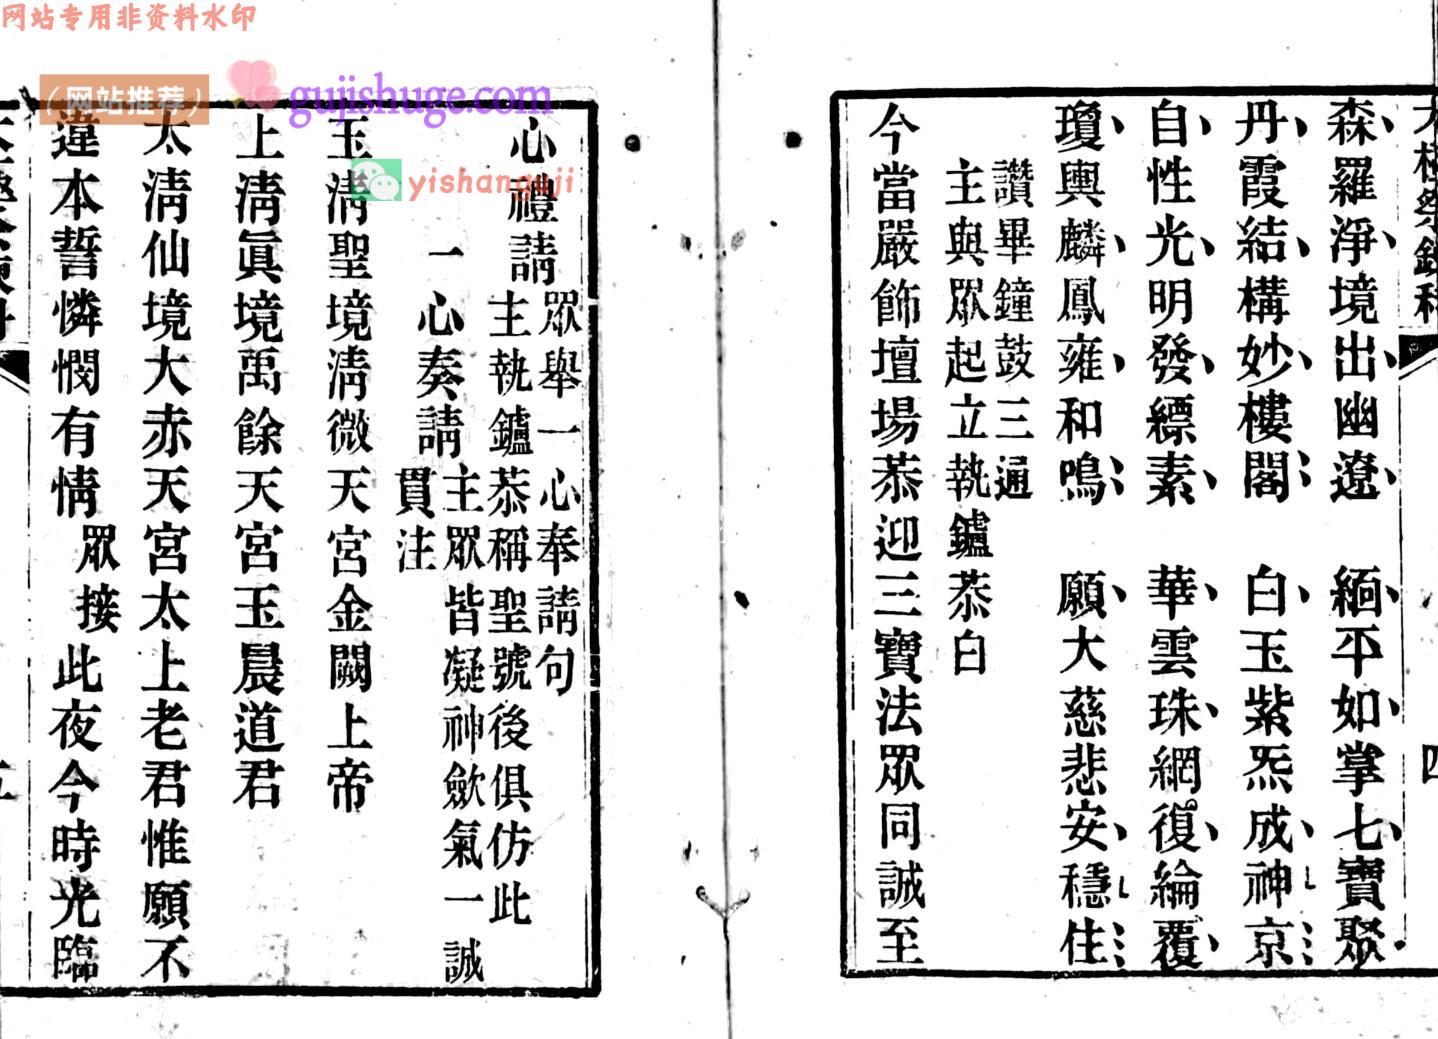 网站专用非资料水印
(网站推荐)
gujishuge.com
yishanguji
森羅淨境出幽遼　緬平如掌七寶聚
丹霞結構妙樓閣　白玉紫炁成神京
自性光明發縹素　華雲珠網復綸覆
瓊輿麟鳳雍和鳴　願大慈悲安穩住
讚畢鐘鼓三通
主與眾起立執鑪恭白
今當嚴飾壇場恭迎三寶法眾同誠至
四
心禮請
眾舉一心奉請句
主執鑪恭稱聖號後俱仿此
一心奏請
主眾皆凝神歛氣一誠
貫注
玉清聖境清微天宮金闕上帝
上清眞境禹餘天宮玉晨道君
太清仙境大赤天宮太上老君惟願不
違本誓憐憫有情
眾接
此夜今時光臨
五